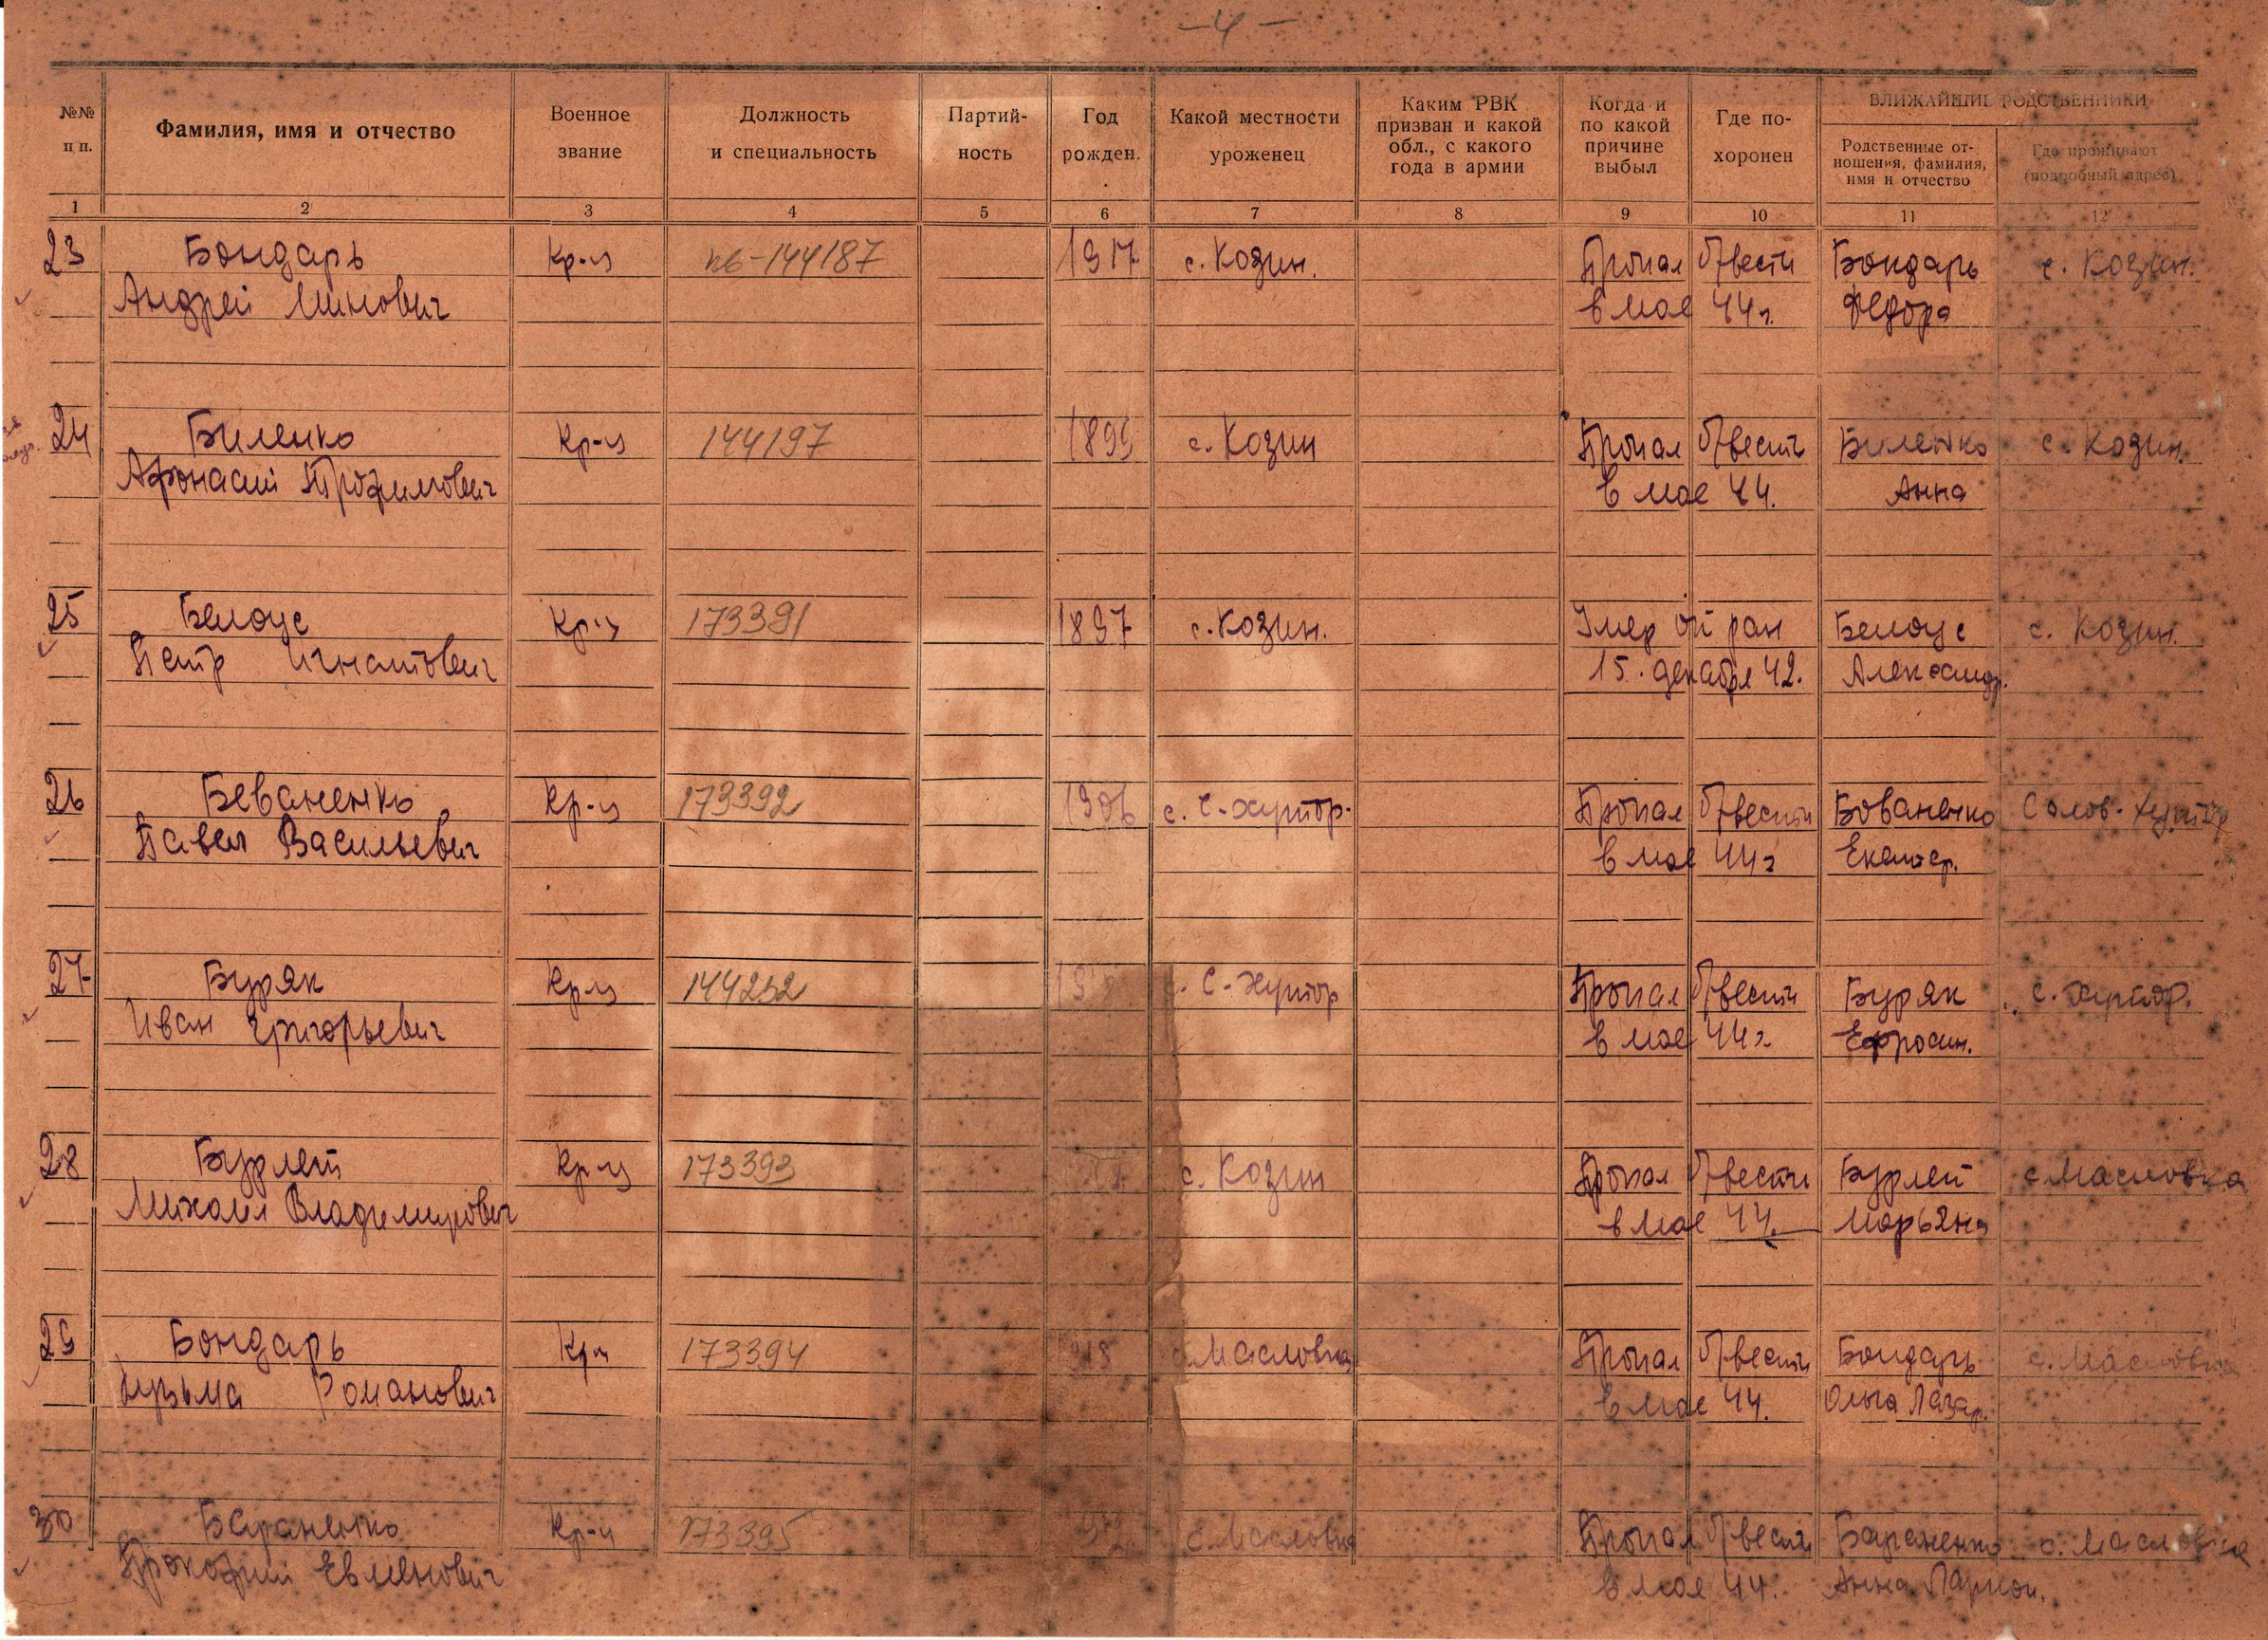 -4-
№№ п п.
Фамилия, имя и отчество
Военное звание
Должность и специальность
Партий-ность
Год рожден.
Какой местности уроженец
Каким РВК призван и какой обл., с какого года в армии
Когда и по какой причине выбыл
Где по-хоронен
БЛИЖАЙШИЕ РОДСТВЕННИКИ
Родственные от-ношения, фамилия, имя и отчество
Где проживают (подробный адрес)
1 2 3 4 5 6 7 8 9 10 11 12
23 Бондарь Кр-ц 144187 1917 с. Козин. Пропал б/вести Бондарь с. Козин.
Андрей Минович в мае 44 г. Федора
24 Биленко Кр-ц 144197 1899 с. Козин Пропал б/вести Биленко с. Козин.
Афонасий Трофимович в мае 44. Анна
25 Белоус Кр-ц 173391 1897 с. Козин. Умер от ран Белоус с. Козин.
Петр Игнатович 15. декабря 42. Александр.
26 Беваненко Кр-ц 173392 1906 с. С-хутор. Пропал б/вести Бованенко Солов-Хутор
Павел Васильевич в мае 44 г Екатер.
27 Буряк Кр-ц 144252 С-хутор Пропал б/вести Буряк с. хутор.
Иван Григорьевич в мае 44 г. Ефросин.
28 Бурлей Кр-ц 173393 с. Козин Пропал б/вести Бурлей с Масловка
Михаил Владимирович в мае 44. Марьяна
29 Бондарь Кр-ц 173394 Масловка Пропал б/вести Бондарь с. Масловка
Кузьма Романович в мае 44. Ольга Лазар.
30 Бараненко Кр-ц 173395 с. Масловка Пропал б/вести Бараненко с. Масловка
Прокофий Евменович в мае 44. Анна